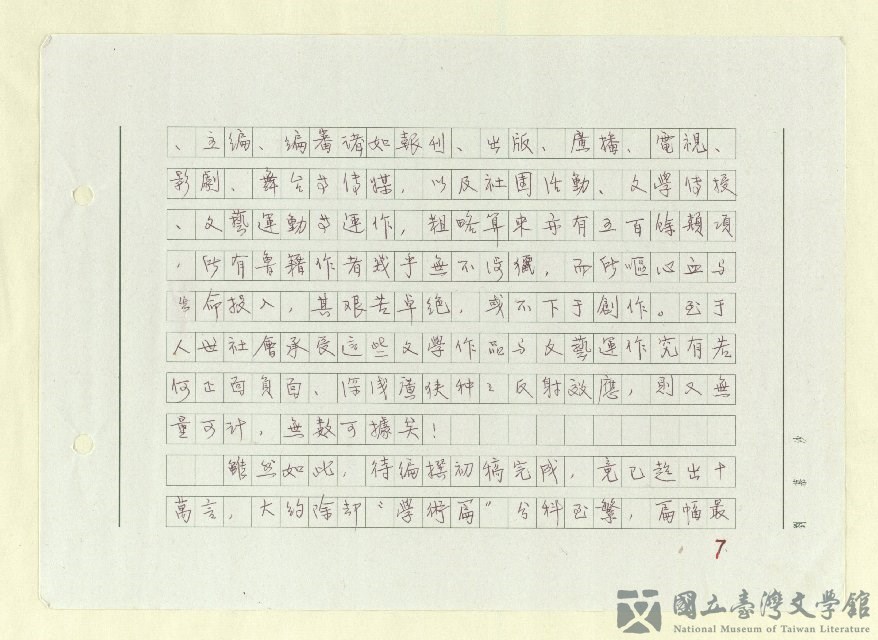 、主编、編審诸如報刊、出版、廣播、電視、
影劇、舞台䓁傳媒，以及社團活動、文學傳授
、文藝運動䓁運作，粗略算來亦有五百餘類項
，所有魯籍作者戏乎無不涉獵，而所嘔心血与
生命投入，其艰苦卓绝，或不下于創作。至于
人世社會承受這些文学作品与文藝運作究有若
何正面負面、深浅廣狭种々反射效應，則又無
量可计，無数可據矣！
雖然如此，待編撰初稿完成，竟已超出十
萬言，大约除却“學術篇”分科至繁，篇幅最
7
國立臺灣文學館
National Museum of Taiwan Literature